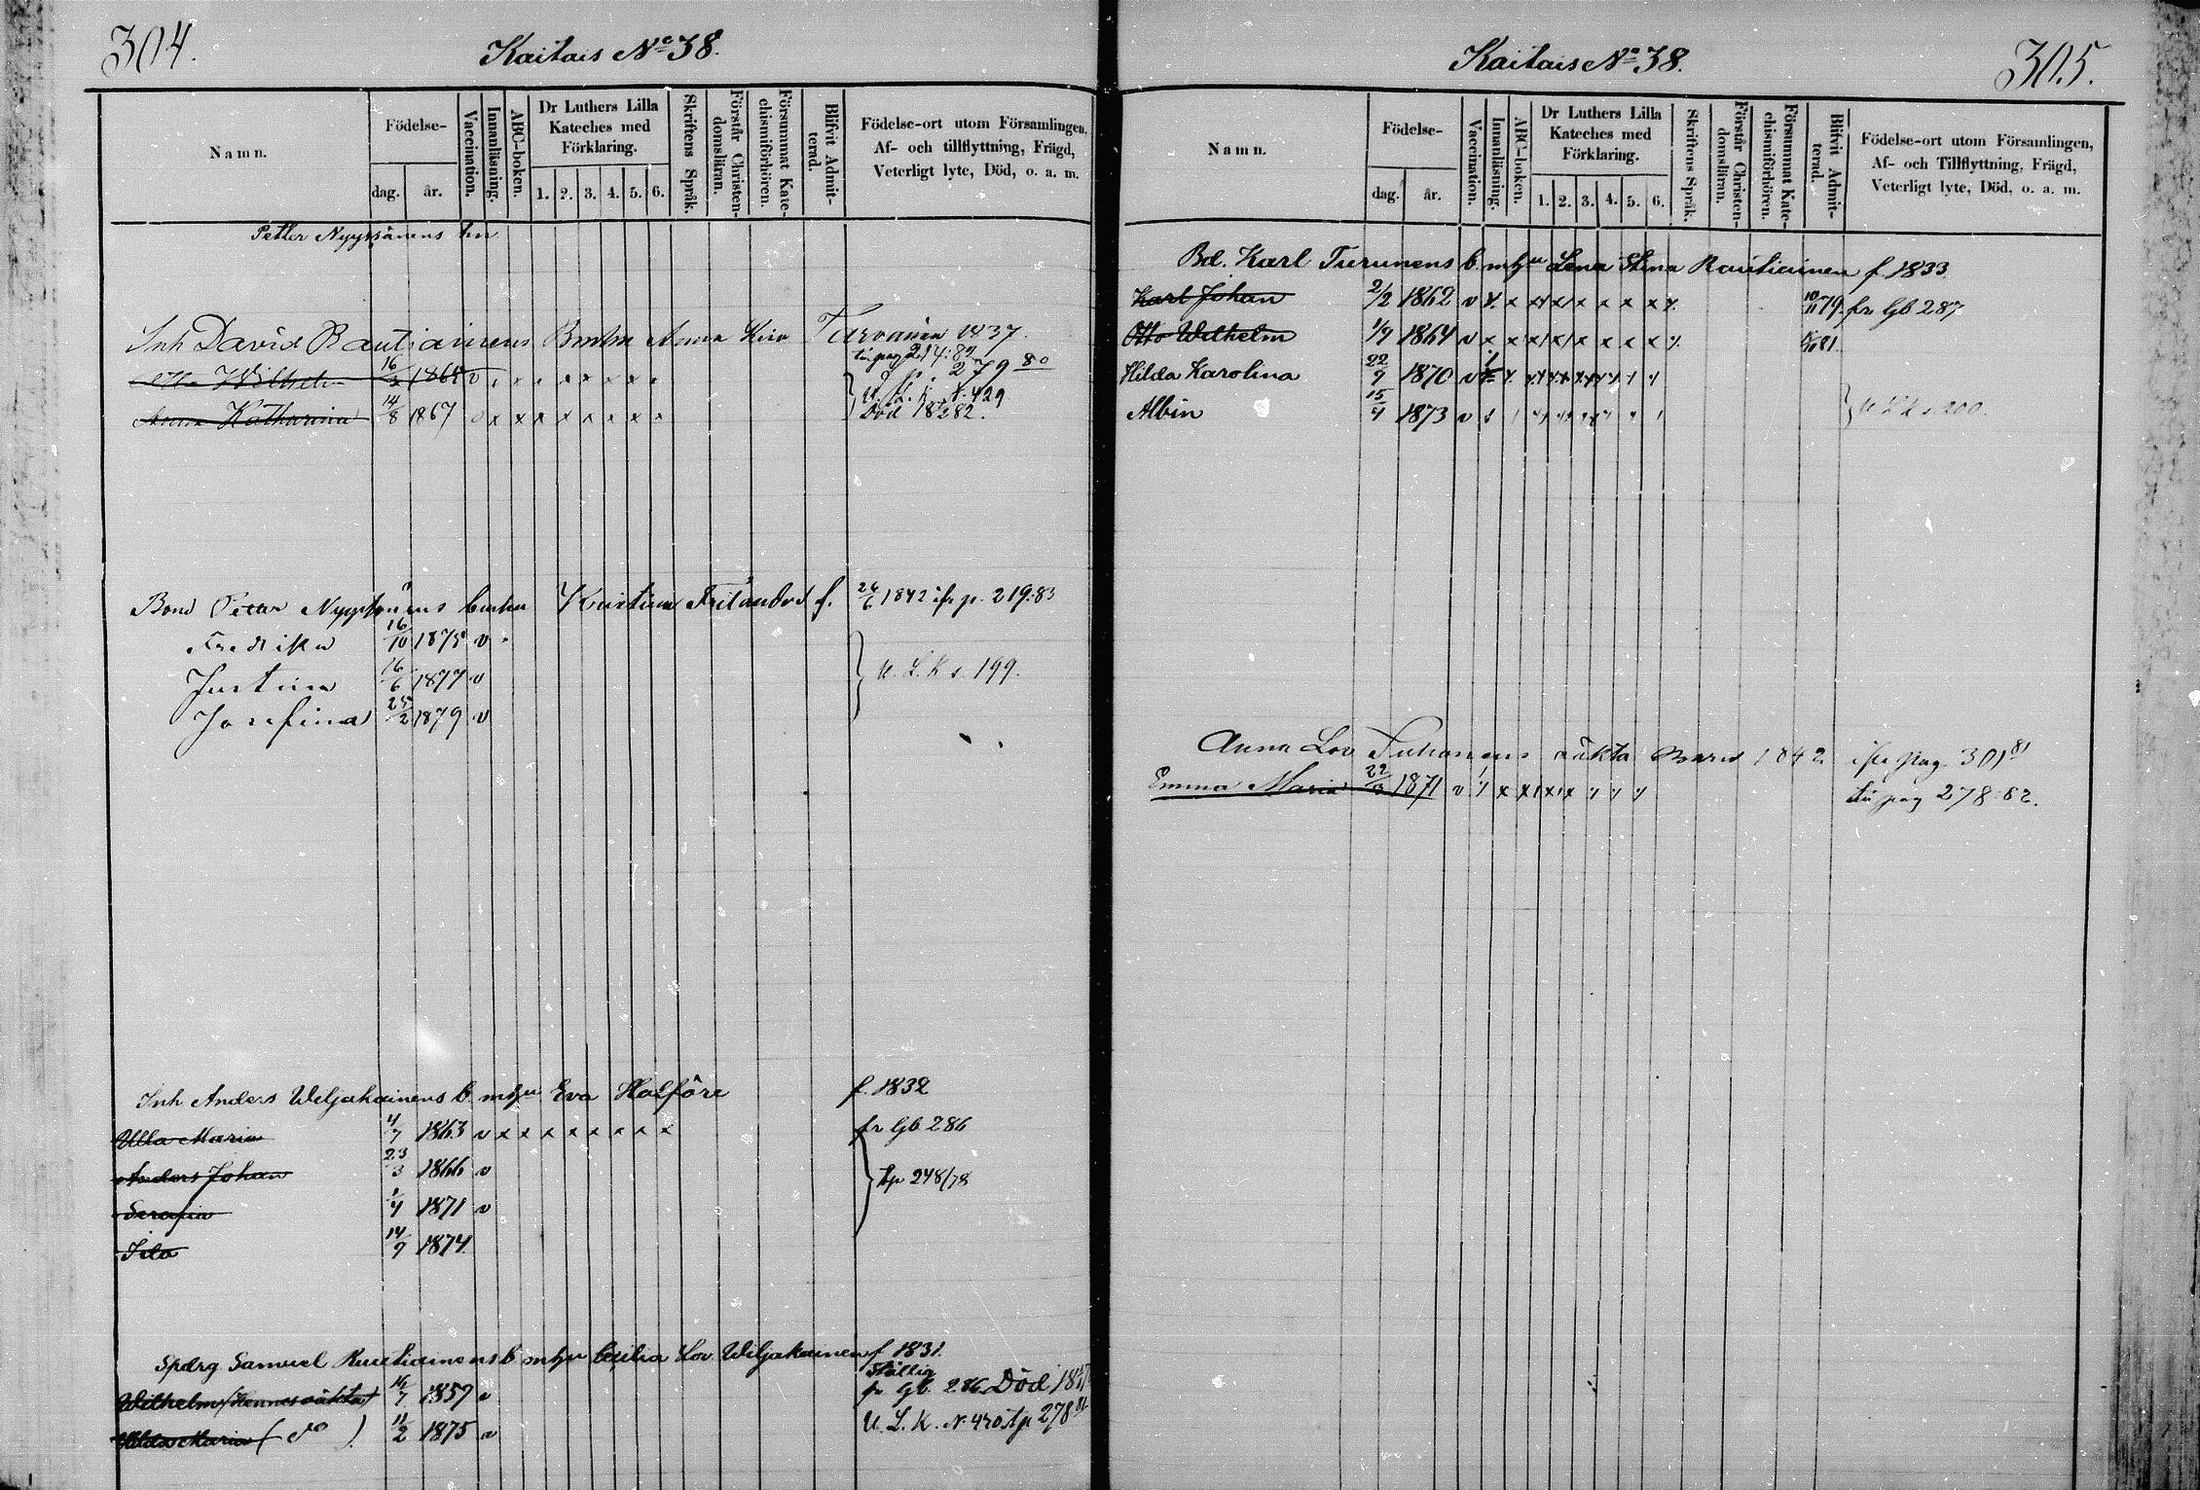 304.
Kaitais No 38.
Namn.
Födelse-
dag.
år.
Vaccination.
Innanläsning.
ABC-boken.
Dr Luthers Lilla
Kateches med
Förklaring.
1. 2. 3. 4. 5. 6.
Skriftens Språk.
Förstår Christen-
domsläran.
Försummat Kate-
chismiförhören.
Blifvit Admit-
terad.
Födelse-ort utom Församlingen,
Af- och tillflyttning, Frägd,
Veterligt lyte, Död, o. a. m.
Petter Nyyssönens
Inh David Rautiainens Anna 1837.
Wilhelm 16 v x x x x x x x x
279 80
Katharina 14/8 1867 v x x x x x x x x
Död 18282.
Bond Petter Kristina f. 26/6 1842 ifr p. 219:83
Fredrika 16/10 1875 v
Justina 16/6 1877 v
U. L. K s. 199.
Josefina 25/2 1879 v
Inh Anders Weljakainens b. m hu Eva Halföre f. 1832
Ulla Maria 4/7 1863 v x x x x x x x x fr Gb 286
Anders Johan 23/3 1866 v
tp 248/78
Serafia 1/4 1871 v
Ida 14/9 1874.
Samuel b m hu Cecilia Lov. Weljakainen f 1831.
Wilhelm 16/7 1857 v fr Gb. 286. Död
Hilda Maria (do) 11/2 1875 v U. L. K. N. 430 tp 278 81
305.
Kaitais No 38.
Namn.
Födelse-
dag.
år.
Vaccination.
Innanläsning.
ABC-boken.
Dr Luthers Lilla
Kateches med
Förklaring.
1. 2. 3. 4. 5. 6.
Skriftens Språk.
Förstår Christen-
domsläran.
Försummat Kate-
chismiförhören.
Blifvit Admit-
terad.
Födelse-ort utom Församlingen,
Af- och Tillflyttning, Frägd,
Veterligt lyte, Död, o. a. m.
Bd. Karl Turunens b. m hu Lena Stina Rautiainen f 1833
Karl Johan 2/2 1862 v x x x x x x x x 10/11 79. fr Gb 287
Otto Wilhelm 1/9 1864 v x x x x x x x x 81.
Hilda Karolina 22/9 1870 v
Albin 15/4 1873 v
U L K s. 200.
Anna Lov oäkta Barn 1842 ifr pag. 301 81
Emma Maria 22/3 1871 v till pag 278:82.